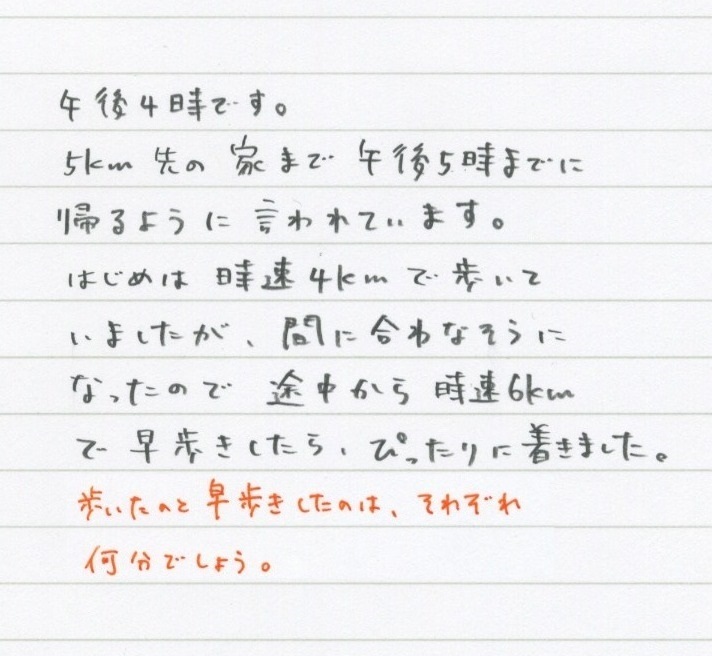 午後4時です。
5km先の家まで午後5時までに
帰るように言われています。
はじめは時速4kmで歩いて
いましたが、間に合わなそうに
なったので途中から時速6km
で早歩きしたら、ぴったりに着きました。
歩いたのと早歩きしたのは、それぞれ
何分でしょう。